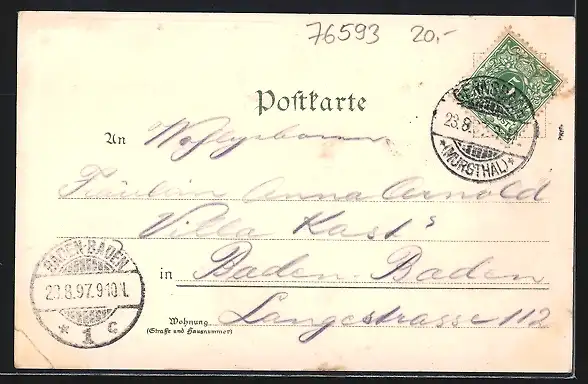 76593 20,-
Postkarte
GERNSBACH
23.8.
* (MURGTHAL) *
An Wohlgeboren
Fräulein Anna Arnold
Villa Kast's
in Baden-Baden
Wohnung Langestrasse 112
(Straße und Hausnummer)
BADEN-BADEN
23.8.97.9-10V.
* 1 c